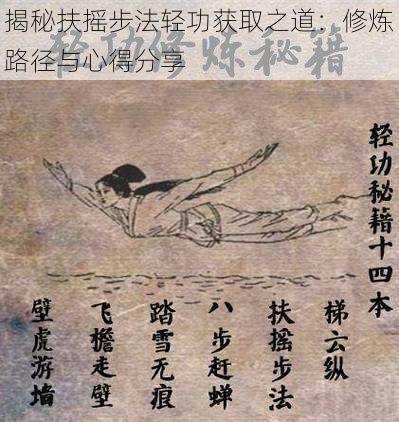 揭秘扶摇步法轻功获取之道：修炼
路径与心得分享
轻功修炼秘籍
轻功秘籍十四本
梯云纵
扶摇步法
八步赶蝉
踏雪无痕
飞檐走壁
壁虎游墙